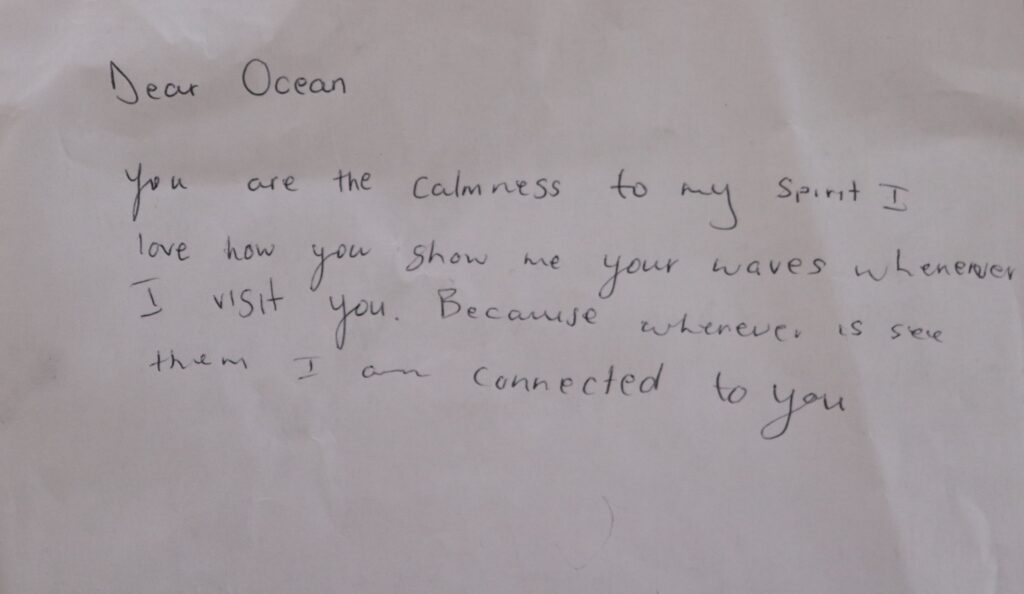 Dear Ocean
You are the calmness to my spirit I
love how you show me your waves whenever
I visit you. Because whenever is see
them I am connected to you